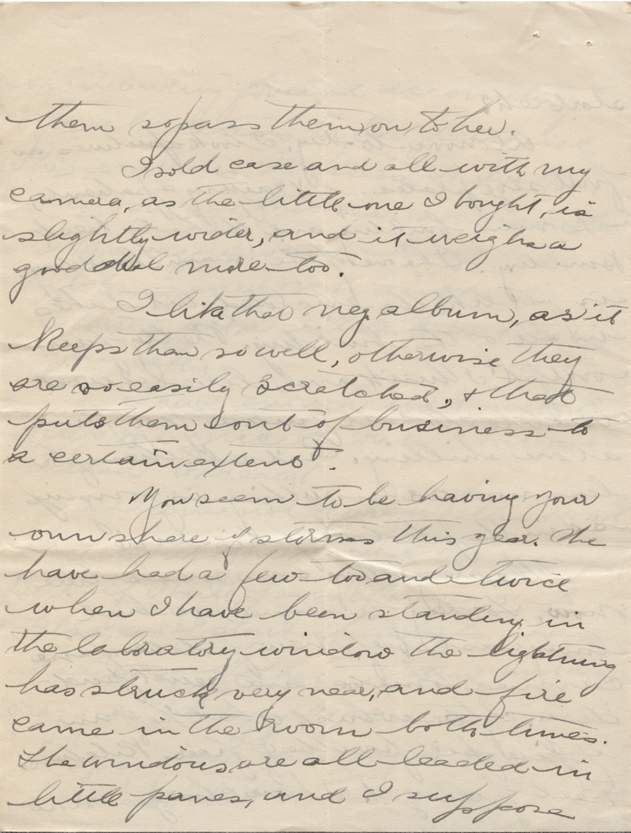 them so pass them on to her.
I sold case and all with my
camera, as the little one I bought, is
slightly wider, and it weighs a
good deal more too.
I like that neg album, as it
keeps them so well, otherwise they
are so easily scratched, & that
puts them out of business to
a certain extent.
You seem to be having your
own share of storms this year. We
have had a few too and twice
when I have been standing in
the laboratory window the lightning
has struck very near, and fire
came in the room both times.
The windows are all leaded in
little panes, and I suppose